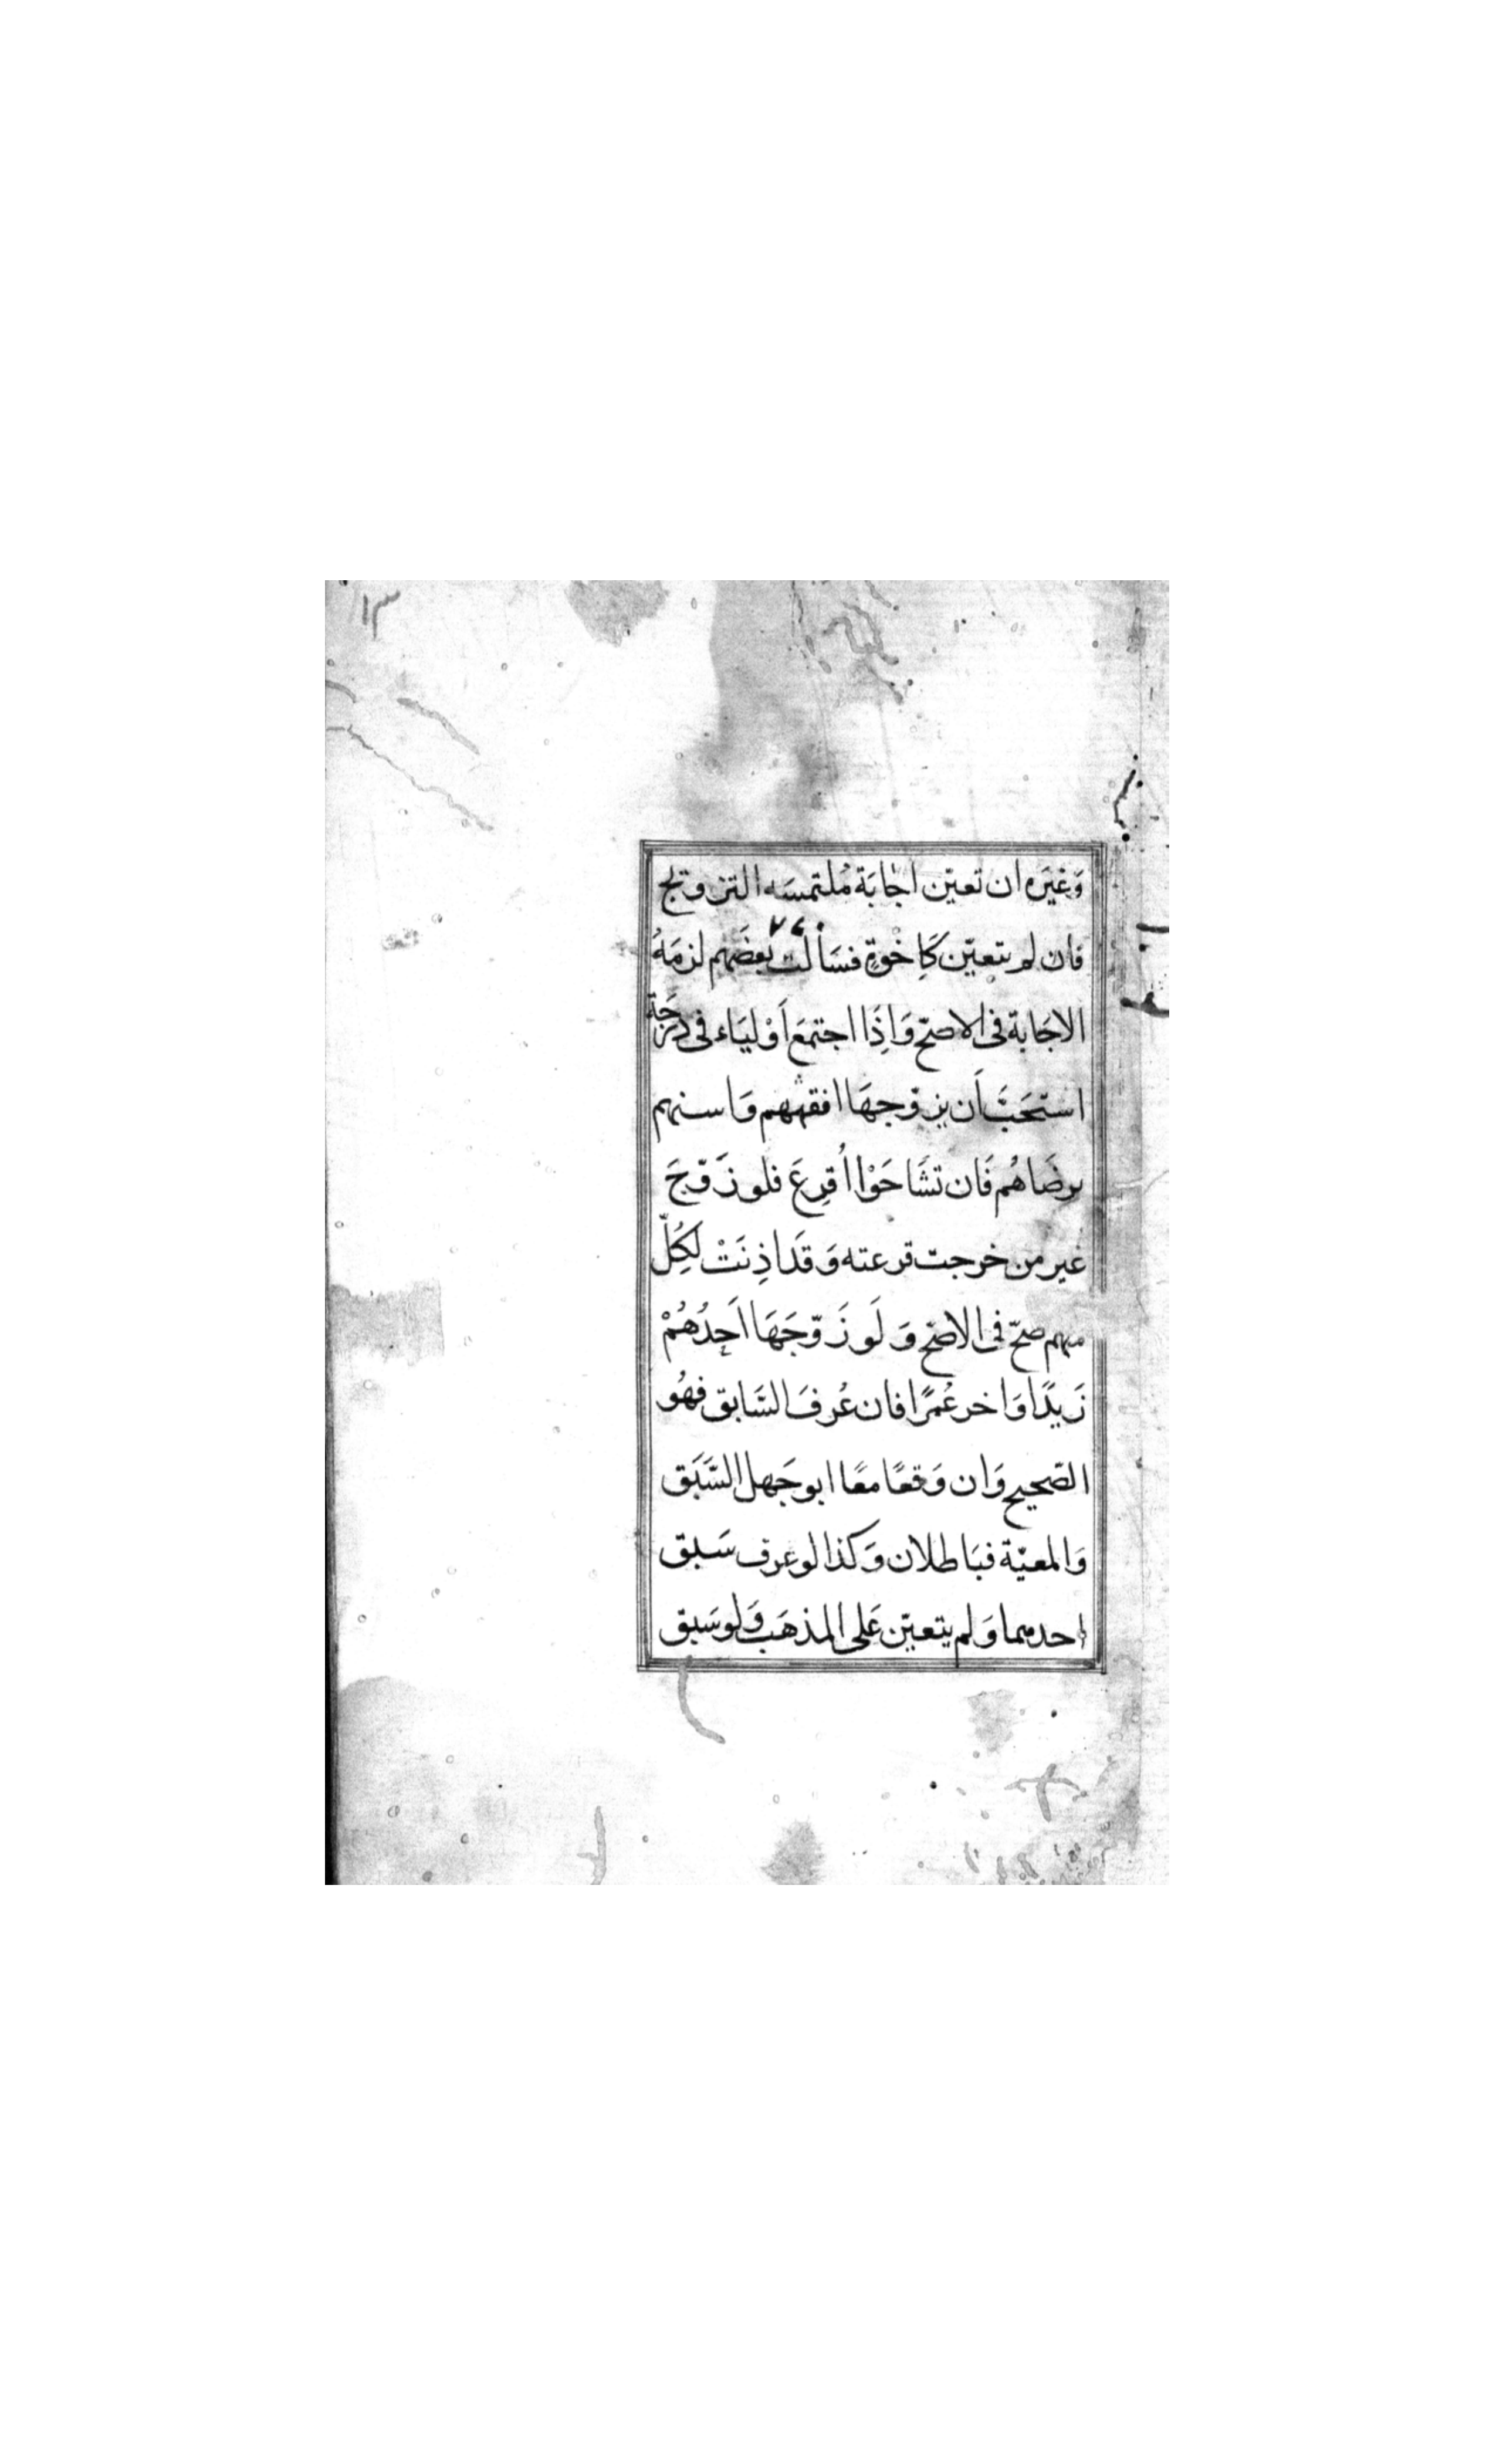 ١٣
وَغَيره ان تعيّن اجَابَة مُلتمسَه التزويج
فان لم يتعيّن كَاِخْوةٍ فسَألت بَعضَهم لزمَهُ
الاجَابة فى الاصحّ وَاِذَا اجتمَع اَوْليَاء فى دَرَجَة
استحَبَّ اَن يزوّجهَا افقههم وَاسنهم
برضَاهُم فَان تشَاحَوْا اُقرِعَ فلو زَوّجَ
غير من خرجت قرعته وَقَداذِنَتْ لكُلّ
منهم صحّ فى الاصحّ وَلَو زَوّجَهَا اَحدُهُمْ
زَيدًا وَاخر عُمرًا فان عُرفَ السَّابق فهُو
الصّحيح وَان وَقعًا معًا ابو جَهل السَّبَق
وَالمعيّة فبَاطلان وَكذا لو عرف سَبق
احدهما وَلم يتعيّن عَلى المذهَب وَلو سَبق